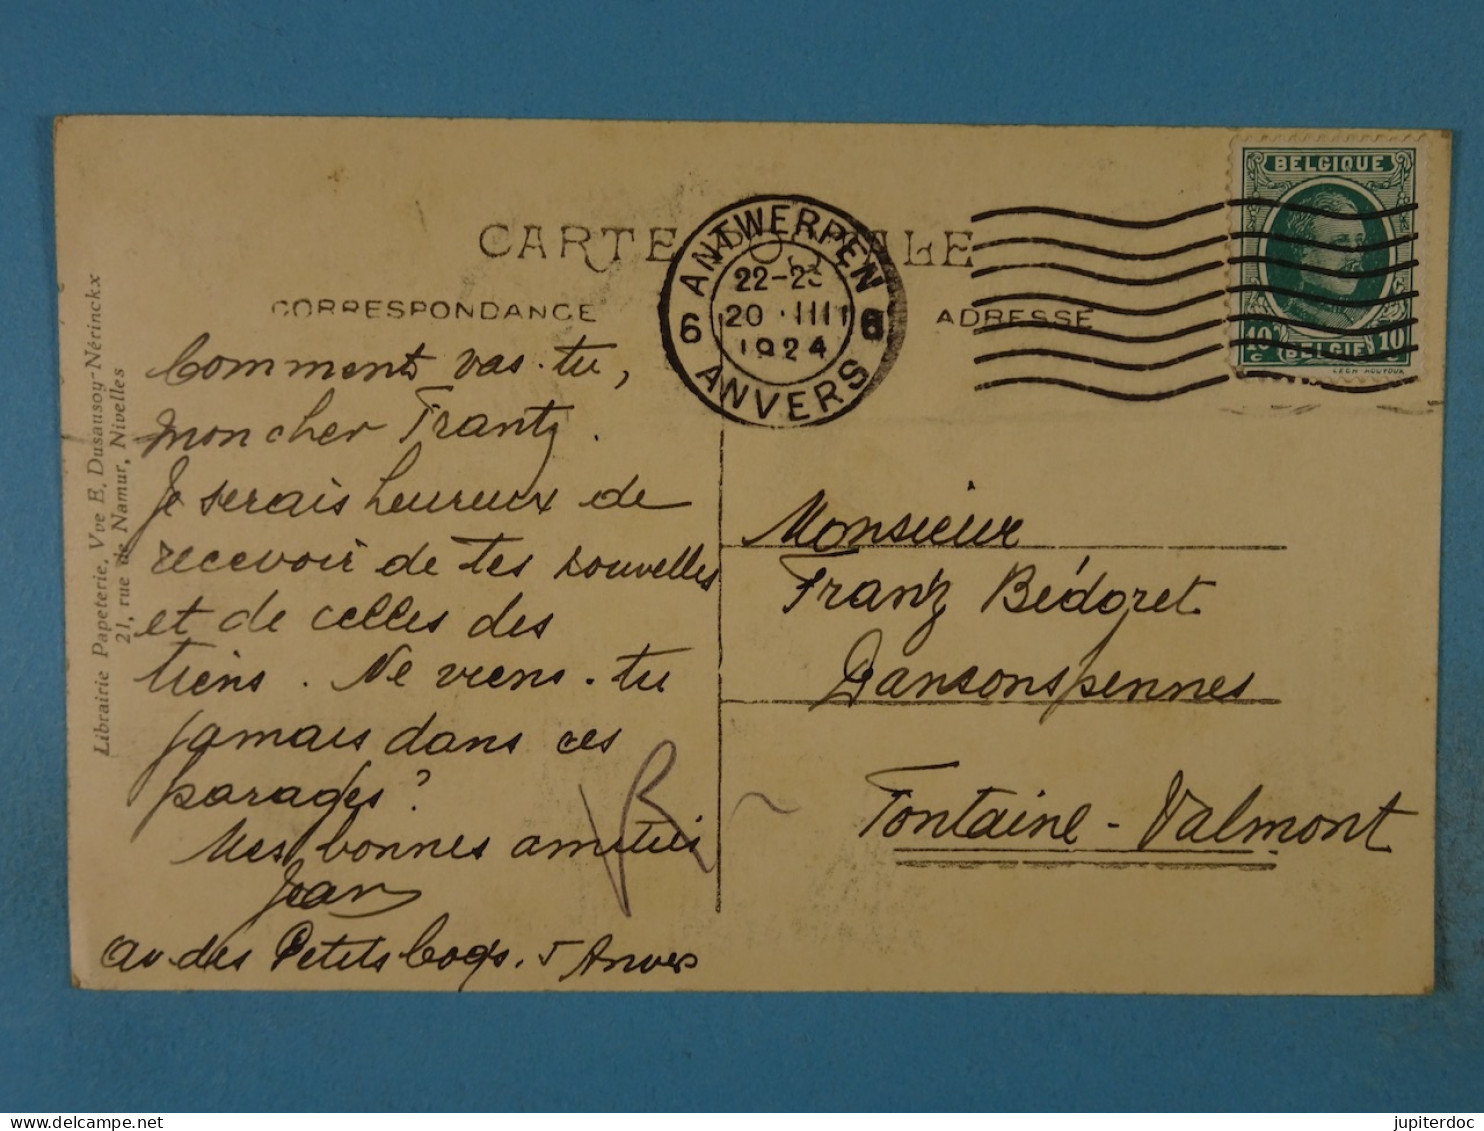 CARTE POSTALE
CORRESPONDANCE
ADRESSE
ANTWERPEN
22-23
20 III
1924
6 6
ANVERS
BELGIQUE
10 C
BELGIË
10
Librairie Papeterie, Vve E. Dusausoy-Nérinckx
21, rue de Namur, Nivelles
Comment vas-tu,
mon cher Frantz.
Je serais heureux de
recevoir de tes nouvelles
et de celles des
tiens. Ne viens-tu
jamais dans ces
parages?
Mes bonnes amitiés
Jean
av. des Petits Coqs. 5 Anvers
Monsieur
Franz Bédoret
Dansonspennes
Fontaine-Valmont
jupiterdoc